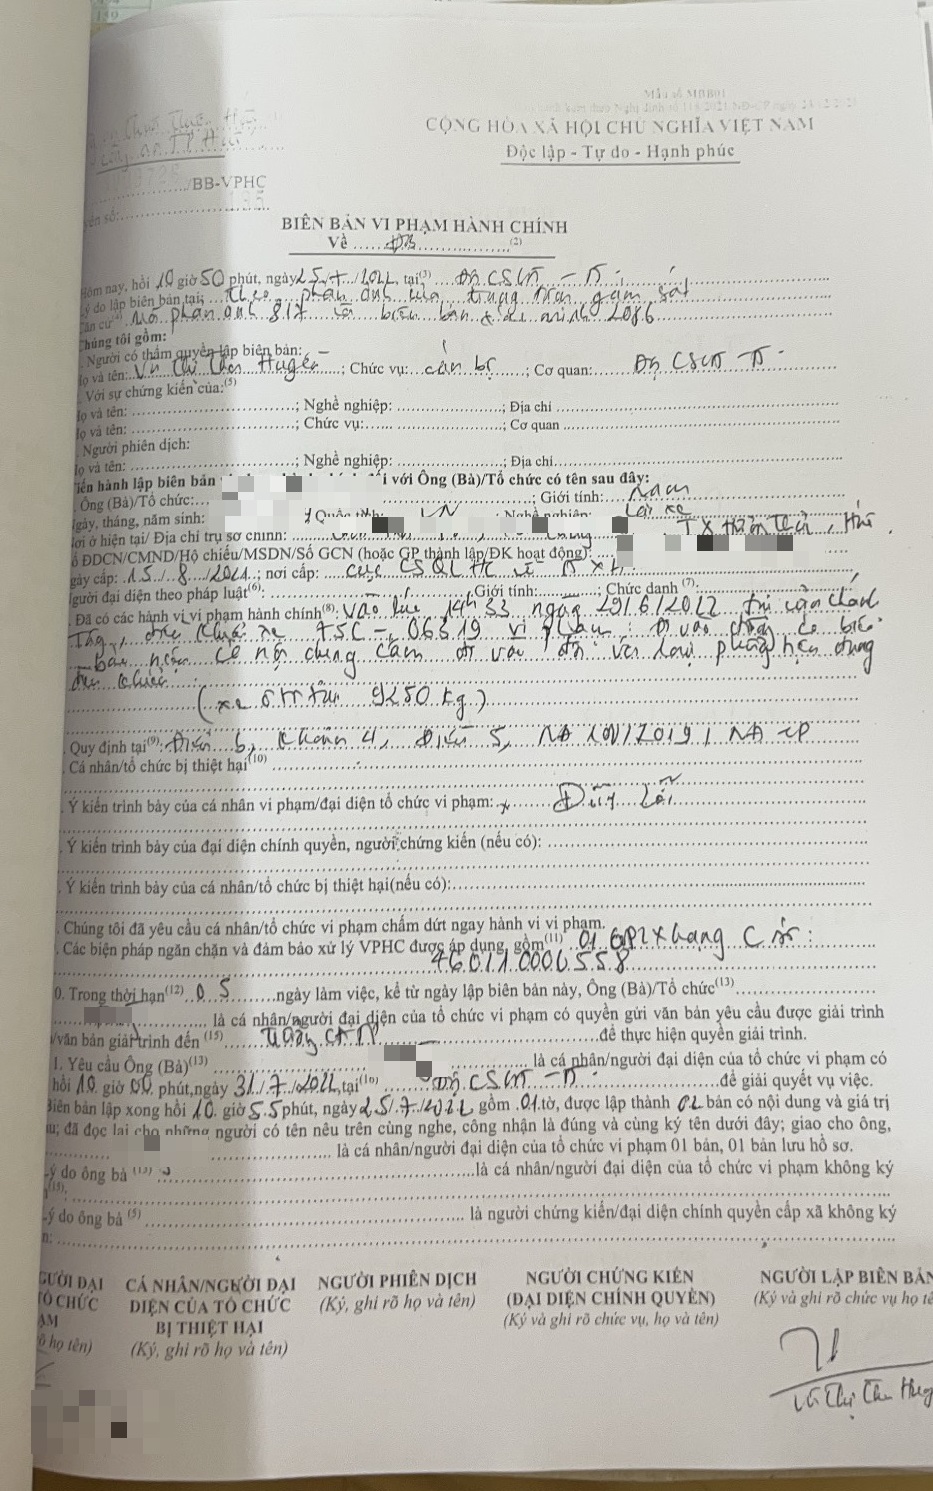 Mẫu số MBB01
CỘNG HÒA XÃ HỘI CHỦ NGHĨA VIỆT NAM
Độc lập - Tự do - Hạnh phúc
/BB-VPHC
BIÊN BẢN VI PHẠM HÀNH CHÍNH
Về ... (2)
hồi 10 giờ 50 phút, ngày 25/7/2022, tại(3)
ý do lập biên bản tại: theo phản ánh của trung tâm giám sát
Mã phản ánh 817
húng tôi gồm:
. Người có thẩm quyền lập biên bản:
ọ và tên: Vũ Thị Thu Huyền; Chức vụ: cán bộ; Cơ quan:
. Với sự chứng kiến của:(5)
ọ và tên: ; Nghề nghiệp: ; Địa chỉ
ọ và tên: ; Chức vụ: ; Cơ quan
. Người phiên dịch:
ọ và tên: ; Nghề nghiệp: ; Địa chỉ
iến hành lập biên bản i với Ông (Bà)/Tổ chức có tên sau đây:
. Ông (Bà)/Tổ chức: ; Giới tính: Nam
gày, tháng, năm sinh: VN Lái xe
ơi ở hiện tại/ Địa chỉ trụ sở chính: TX Hương Thủy, Huế
ố ĐDCN/CMND/Hộ chiếu/MSDN/Số GCN (hoặc GP thành lập/ĐK hoạt động):
gày cấp: 15/8/2021; nơi cấp: cục CSQLHC về
gười đại diện theo pháp luật(6): ; Giới tính: ; Chức danh (7)
. Đã có các hành vi vi phạm hành chính(8): Vào lúc 14h33 ngày 29/6/2022
điều khiển xe 75C-06319 vi phạm: Đi vào đường có biển
báo hiệu có nội dung cấm đi vào đối với loại phương tiện đang
điều khiển
(xe ô tô tải 9250 kg)
. Quy định tại(9): Điểm b, khoản 4, Điều 5, NĐ 100/2019/NĐ-CP
. Cá nhân/tổ chức bị thiệt hại(10)
. Ý kiến trình bày của cá nhân vi phạm/đại diện tổ chức vi phạm: Đúng lỗi
. Ý kiến trình bày của đại diện chính quyền, người chứng kiến (nếu có):
. Ý kiến trình bày của cá nhân/tổ chức bị thiệt hại(nếu có):
. Chúng tôi đã yêu cầu cá nhân/tổ chức vi phạm chấm dứt ngay hành vi vi phạm.
. Các biện pháp ngăn chặn và đảm bảo xử lý VPHC được áp dụng, gồm(11) 01 GPLX hạng C số:
460110006558
0. Trong thời hạn(12) 05 ngày làm việc, kể từ ngày lập biên bản này, Ông (Bà)/Tổ chức(13)
là cá nhân/người đại diện của tổ chức vi phạm có quyền gửi văn bản yêu cầu được giải trình
/văn bản giải trình đến (15) để thực hiện quyền giải trình.
1. Yêu cầu Ông (Bà)(13) là cá nhân/người đại diện của tổ chức vi phạm có
hồi 10 giờ 00 phút, ngày 31/7/2022, tại(16) để giải quyết vụ việc.
Biên bản lập xong hồi 10 giờ 55 phút, ngày 25/7/2022 gồm 01 tờ, được lập thành 02 bản có nội dung và giá trị
u; đã đọc lại cho những người có tên nêu trên cùng nghe, công nhận là đúng và cùng ký tên dưới đây; giao cho ông,
là cá nhân/người đại diện của tổ chức vi phạm 01 bản, 01 bản lưu hồ sơ.
ý do ông bà (13) là cá nhân/người đại diện của tổ chức vi phạm không ký
(15):
ý do ông bà (5) là người chứng kiến/đại diện chính quyền cấp xã không ký
n:
GƯỜI ĐẠI CÁ NHÂN/NGƯỜI ĐẠI NGƯỜI PHIÊN DỊCH NGƯỜI CHỨNG KIẾN NGƯỜI LẬP BIÊN BẢN
TỔ CHỨC DIỆN CỦA TỔ CHỨC (Ký, ghi rõ họ và tên) (ĐẠI DIỆN CHÍNH QUYỀN) (Ký và ghi rõ chức vụ họ tê
ẠM BỊ THIỆT HẠI (Ký và ghi rõ chức vụ, họ và tên)
õ họ tên) (Ký, ghi rõ họ và tên)
Vũ Thị Thu Huy